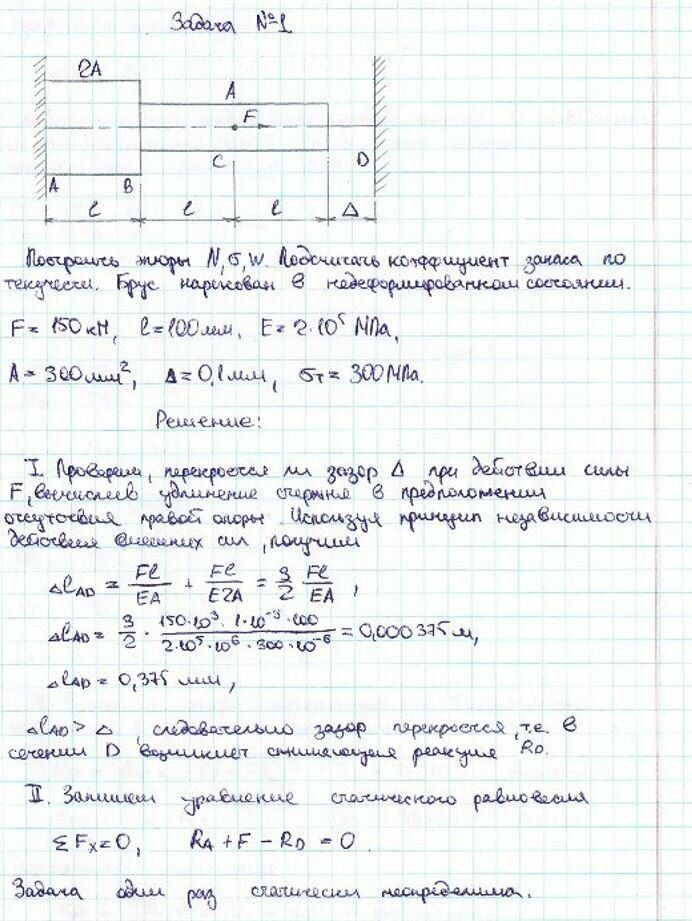 Задача №1
2A
A
F
C
D
A
B
l
l
l
Δ
Построить эпюры N, σ, w. Подсчитать коэффициент запаса по
текучести. Брус нарисован в недеформированном состоянии.
F = 150 кН, l = 100 мм, E = 2·10⁵ МПа,
A = 300 мм², Δ = 0,1 мм, σт = 300 МПа.
Решение:
I. Проверим, перекроется ли зазор Δ при действии силы
F, вычислив удлинение стержня в предположении
отсутствия правой опоры. Используя принцип независимости
действия внешних сил, получим
Δl_AD = Fl/EA + Fl/E2A = 3/2 Fl/EA,
Δl_AD = 3/2 · 150·10³·1·10⁻³·100/2·10⁵·10⁶·300·10⁻⁶ = 0,000375 м,
Δl_AD = 0,375 мм,
Δl_AD > Δ, следовательно зазор перекроется, т.е. в
сечении D возникнет сжимающая реакция R_D.
II. Запишем уравнение статического равновесия
ΣFx = 0, R_A + F − R_D = 0.
Задача один раз статически неопределима.